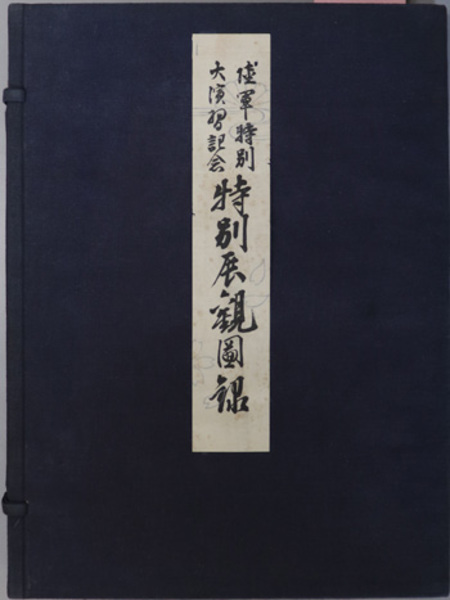 陸軍特別
大演習記念
特別展觀圖録